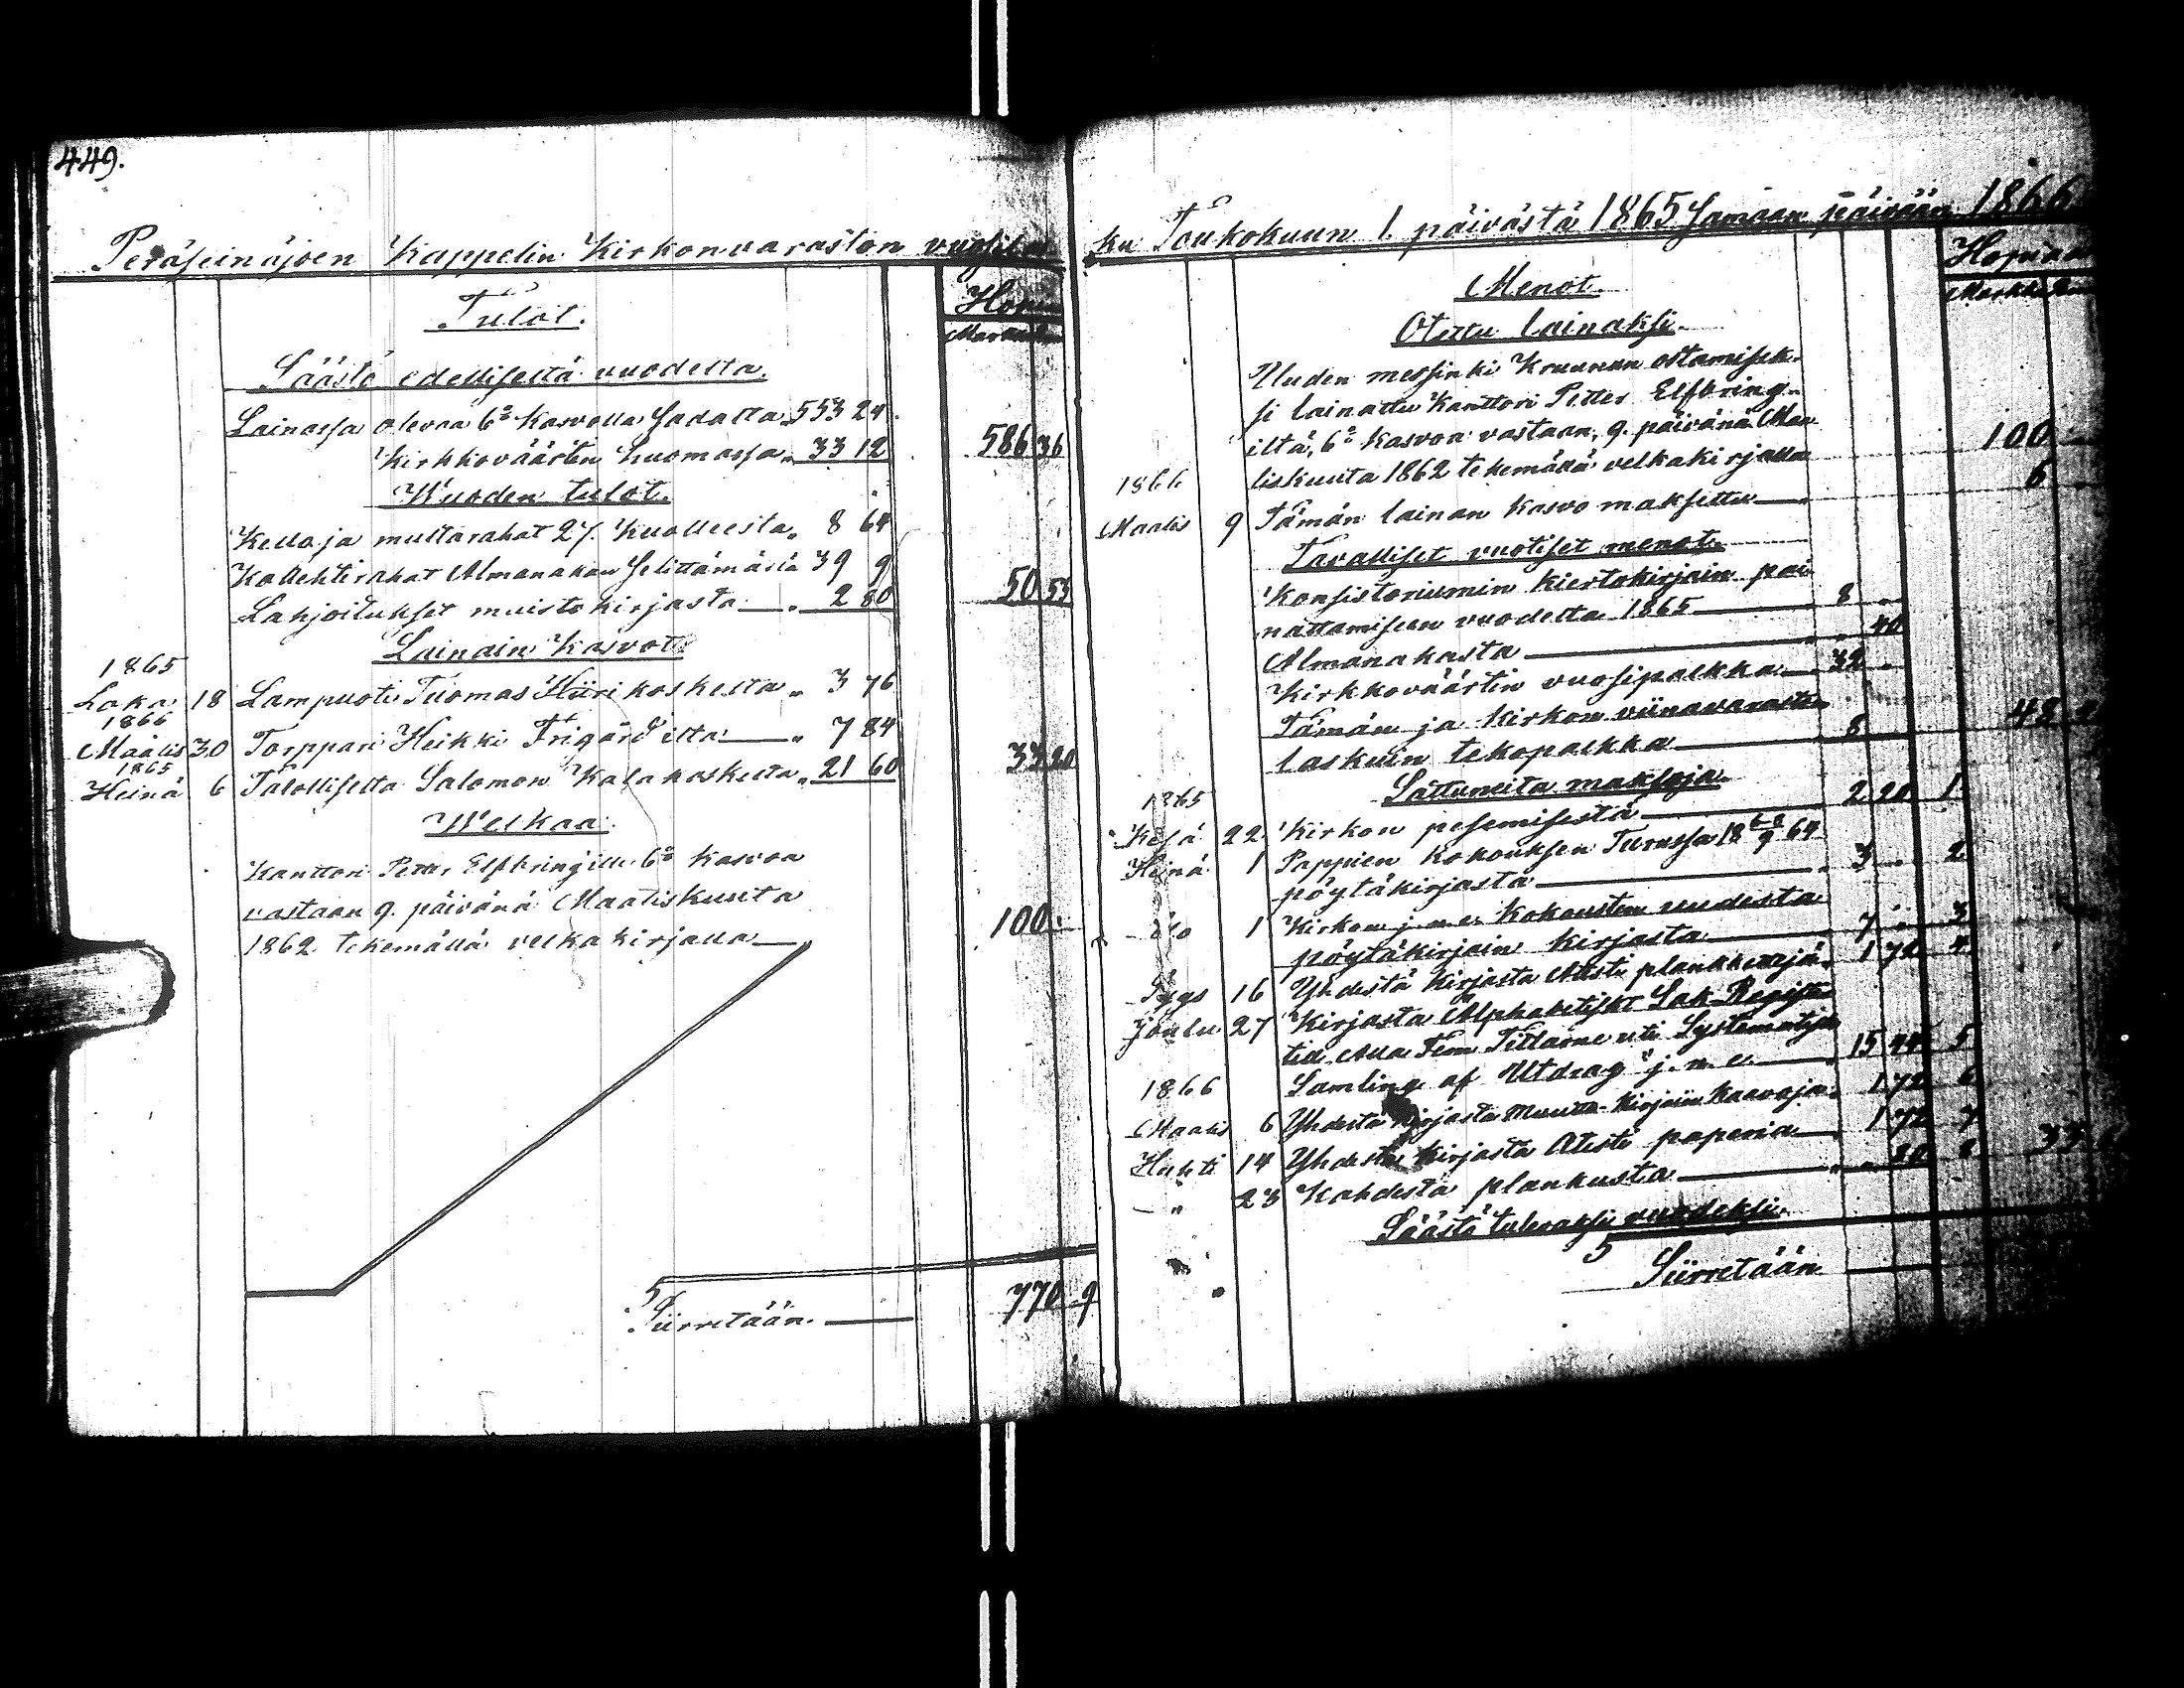 449.
Peräseinäjoen Kappelin Kirkonvaraston vuosilas
Tulot.
Hopea
Säästö edelliseltä vuodelta.
Lainassa olevaa 6% Kasvolla Sadalta „ 553 24.
Kirkkoväärtin huomassa „ 33 12 586 36
Wuoden tulot.
Kello ja multarahat 27. Kuolleesta „ 8 64
Kollehtirahat Almanakan selittämäsiä 39 9
Lahjoitukset muistokirjasta — „ 2 80 50 53
Lainain Kasvot.
1865
Loka 18 Lampuoti Tuomas Hiirikoskelta „ 3 76
1866
Maalis 30 Torppari Heikki Frigårdilta — „ 7 84
1865
Heinä 6 Talolliselta Salomon Kalakoskelta „ 21 60 33 20
Welkaa.
Kanttori Petter Elfbringille 6% kasvoa
vastaan 9. päivänä Maaliskuuta
1862 tekemällä velkakirjalla — 100.
Siirretään. — 770 9
ku Toukokuun 1. päivästä 1865 Samaan päivään 1866
Menot.
Hopiaa
Otettu lainaksi.
Uuden messinki Kruunun ostamisek-
si lainattu Kanttori Petter Elfbring-
iltä, 6% Kasvoa vastaan, 9. päivänä Maa
liskuuta 1862 tehemällä velkakirjalla 100
1866
Maalis 9 Tämän lainan kasvo maksettu — 6
Tavalliset vuotiset menot.
Konsistoriumin kiertokirjain pai
nattamiseen vuodelta 1865 — 8 „
Almanakasta — „ 40
Kirkkoväärtin vuosipalkka — 32 „
Tämän ja kirkon viinavaraston
laskuin tekopalkka — 8 48
Sattuneita maksoja.
1865
Kesä 22. Kirkon pesemisestä — 2 20 1
Heinä 1 Pappien Kokouksen Turussa 18 6-8/9 64
pöytäkirjasta — „ 3 „ 2
— d:o 1 Kirkon j. n. e. Kokousten uudesta
pöytäkirjain kirjasta — 7 „ 3
Syys 16 Yhdestä Kirjasta Atesti plankkeneja „ 1 72 4
Joulu 27 Kirjasta Alphabetiskt Sak-Register
till Alla Fem Titlarne uti Systematisk
Samling af Utdrag" j. n. e. — „ 15 44 5
1866
Maalis 6 Yhdestä Kirjasta Muutto-Kirjain Kaavoja „ 1 72 6
Huhti 14 Yhdestä Kirjasta Atesti paperia — 1 72 7
— „ 23 Kahdesta plankusta — „ „ 20 8 33
Säästö tulevaksi vuodeksi.
Siirretään —